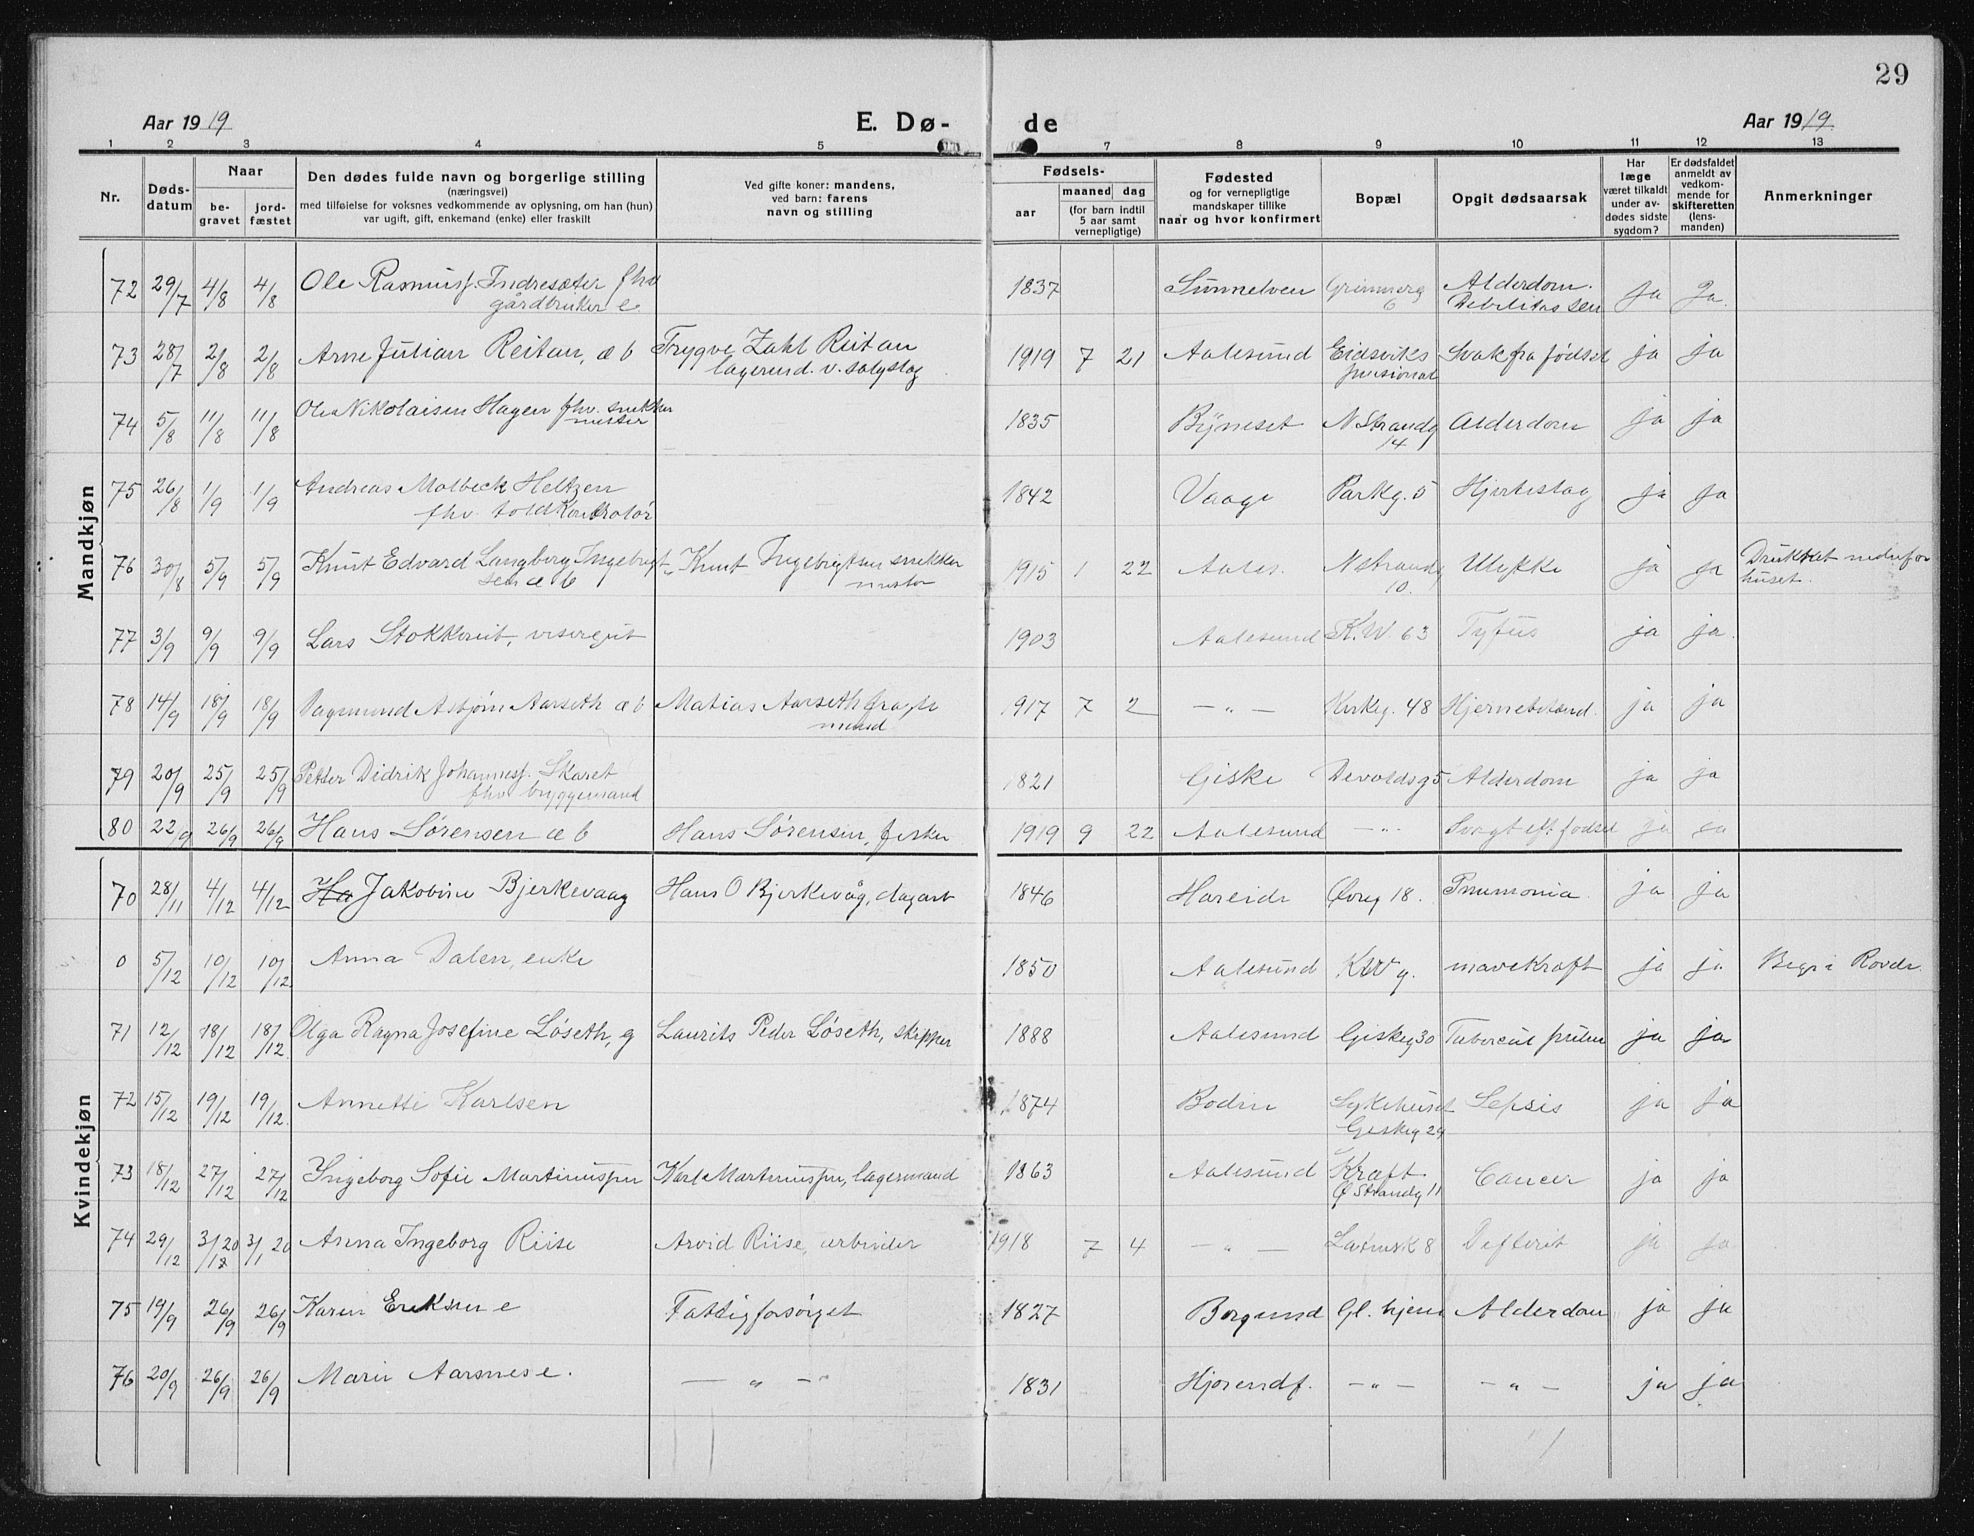 29
Aar 1919 E. Dø- de Aar 1919
1 2 3 4 5 7 8 9 10 11 12 13
Nr. Døds-datum Naar be-gravet jord-fæstet Den dødes fulde navn og borgerlige stilling (næringsvei) med tilføielse for voksnes vedkommende av oplysning, om han (hun) var ugift, gift, enkemand (enke) eller fraskilt Ved gifte koner: mandens, ved barn: farens navn og stilling Fødsels- aar maaned dag (for barn indtil 5 aar samt vernepligtige) Fødested og for vernepligtige mandskaper tillike naar og hvor konfirmert Bopæl Opgit dødsaarsak Har læge været tilkaldt under av-dødes sidste sygdom? Er dødsfaldet anmeldt av vedkom-mende for skifteretten (lens-manden) Anmerkninger
Mandkjøn
72 29/7 4/8 4/8 Ole Rasmusf. Indresæter fhv 1837 Sunnelven Alderdom. ja Ja.
gårdbruker e 6 Debilitas sen
73 28/7 2/8 2/8 Arne Julian Reitan, æ b Trygve Zahl Reitan 1919 7 21 Aalesund Eidsviks Svak fra fødsel ja ja
lagerund. v. salgslag pensionat
74 5/8 11/8 11/8 Ole Nikolaisen Hagen fhv. snekker 1835 Bÿneset N Strandg Alderdom ja ja
mester 14
75 26/8 1/9 1/9 Andreas Molbeck Heltzen 1842 Vaage Parkg. 5 Hjerteslag ja ja
fhv. toldkontrolør
76 30/8 5/9 5/9 Knut Edvard Langberg Ingebrigt- Knut Ingebrigtsen snekker 1915 1 22 Aales. N Strandg Ulykke ja ja Druknet nedenfor
sen æ b mester 10. huset.
77 3/9 9/9 9/9 Lars Stokkereit, visergut 1903 Aalesund K.W 63 Tyfus ja ja.
78 14/9 18/9 18/9 Dagmund Asbjørn Aarseth æ b Matias Aarseth fragte 1917 7 2 — „ — Kirkeg. 48 Hjernebetænd. ja ja
mand
79 20/9 25/9 25/9 Petter Didrik Johannesf. Skaret 1821 Giske Devoldsg 5 Alderdom ja ja
fhv. bryggemand
80 22/9 26/9 26/9 Hans Sørensen æ b Hans Sørensen, fisker 1919 9 22 Aalesund — „ — Svagt eft. fødsel ja ja
Kvindekjøn
70 28/11 4/12 4/12 Ha Jakobine Bjerkevaag Hans O Bjerkevåg, dagarb 1846 Hareide Øvreg 18. Pnumonia ja ja
0 5/12 10/12 10/12 Anna Dalen, enke 1850 Aalesund KWg. mavekræft ja ja Begr i Rovde.
71 12/12 18/12 18/12 Olga Ragna Josefine Løseth, g Laurits Peder Løseth, skipper 1888 Aalesund Giskeg 30 Tubercul pulm ja ja
72 15/12 19/12 19/12 Annette Karlsen 1874 Bodin Sykehuset Sepsis ja ja
Giskeg 29
73 18/12 27/12 27/12 Ingeborg Sofie Martinussen Karl Martinussen, lagermand 1863 Aalesund Kraft Cancer ja ja
Ø Strandg 11
74 29/12 3/12 20 3/1 20 Anna Ingeborg Riise Arvid Riise, arbeider 1918 7 4 — „ — 8 Difterit ja ja
75 19/9 26/9 26/9 Karen Eriksen e Fattigforsørget 1827 Borgund Gl. hjem Alderdom ja ja
76 20/9 26/9 26/9 Marie Aarsnes e. — „ — 1831 Hjorendf. — „ — — „ — ja ja